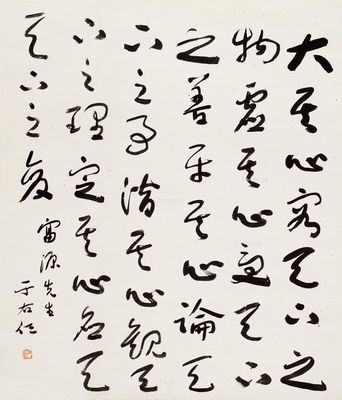 大其心容天下之
物虛其心受天下
之善平其心論天
下之事潛其心觀天
下之理定其心應天
天下之變
富源先生
于右任